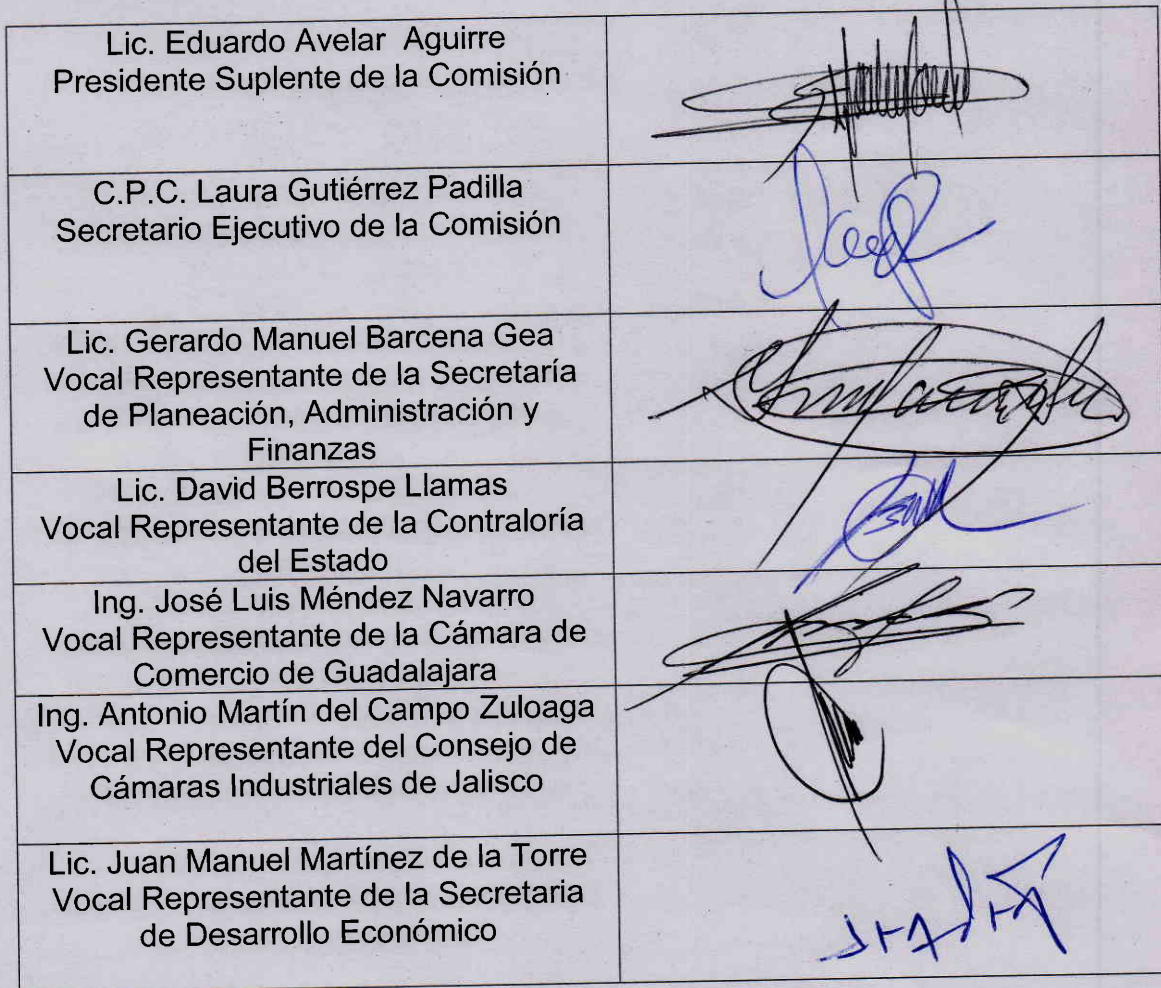 Lic. Eduardo Avelar Aguirre
Presidente Suplente de la Comisión
C.P.C. Laura Gutiérrez Padilla
Secretario Ejecutivo de la Comisión
Lic. Gerardo Manuel Barcena Gea
Vocal Representante de la Secretaría
de Planeación, Administración y
Finanzas
Lic. David Berrospe Llamas
Vocal Representante de la Contraloría
del Estado
Ing. José Luis Méndez Navarro
Vocal Representante de la Cámara de
Comercio de Guadalajara
Ing. Antonio Martín del Campo Zuloaga
Vocal Representante del Consejo de
Cámaras Industriales de Jalisco
Lic. Juan Manuel Martínez de la Torre
Vocal Representante de la Secretaria
de Desarrollo Económico